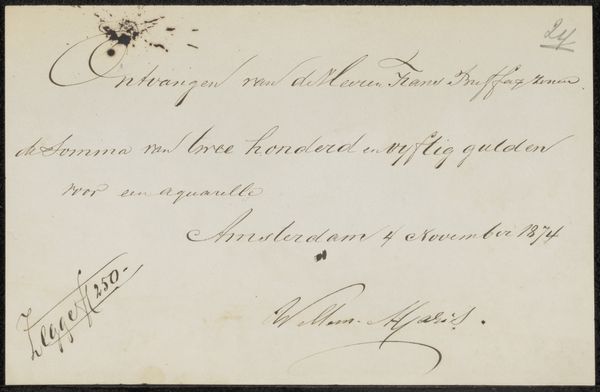 24
Ontvangen van de Heeren Frans Buffa & Zonen
de Somma van twee honderd en vyftig gulden
voor een aquarelle
Amsterdam 4 November 1874
Zegge ƒ 250.-
Willem Maris.